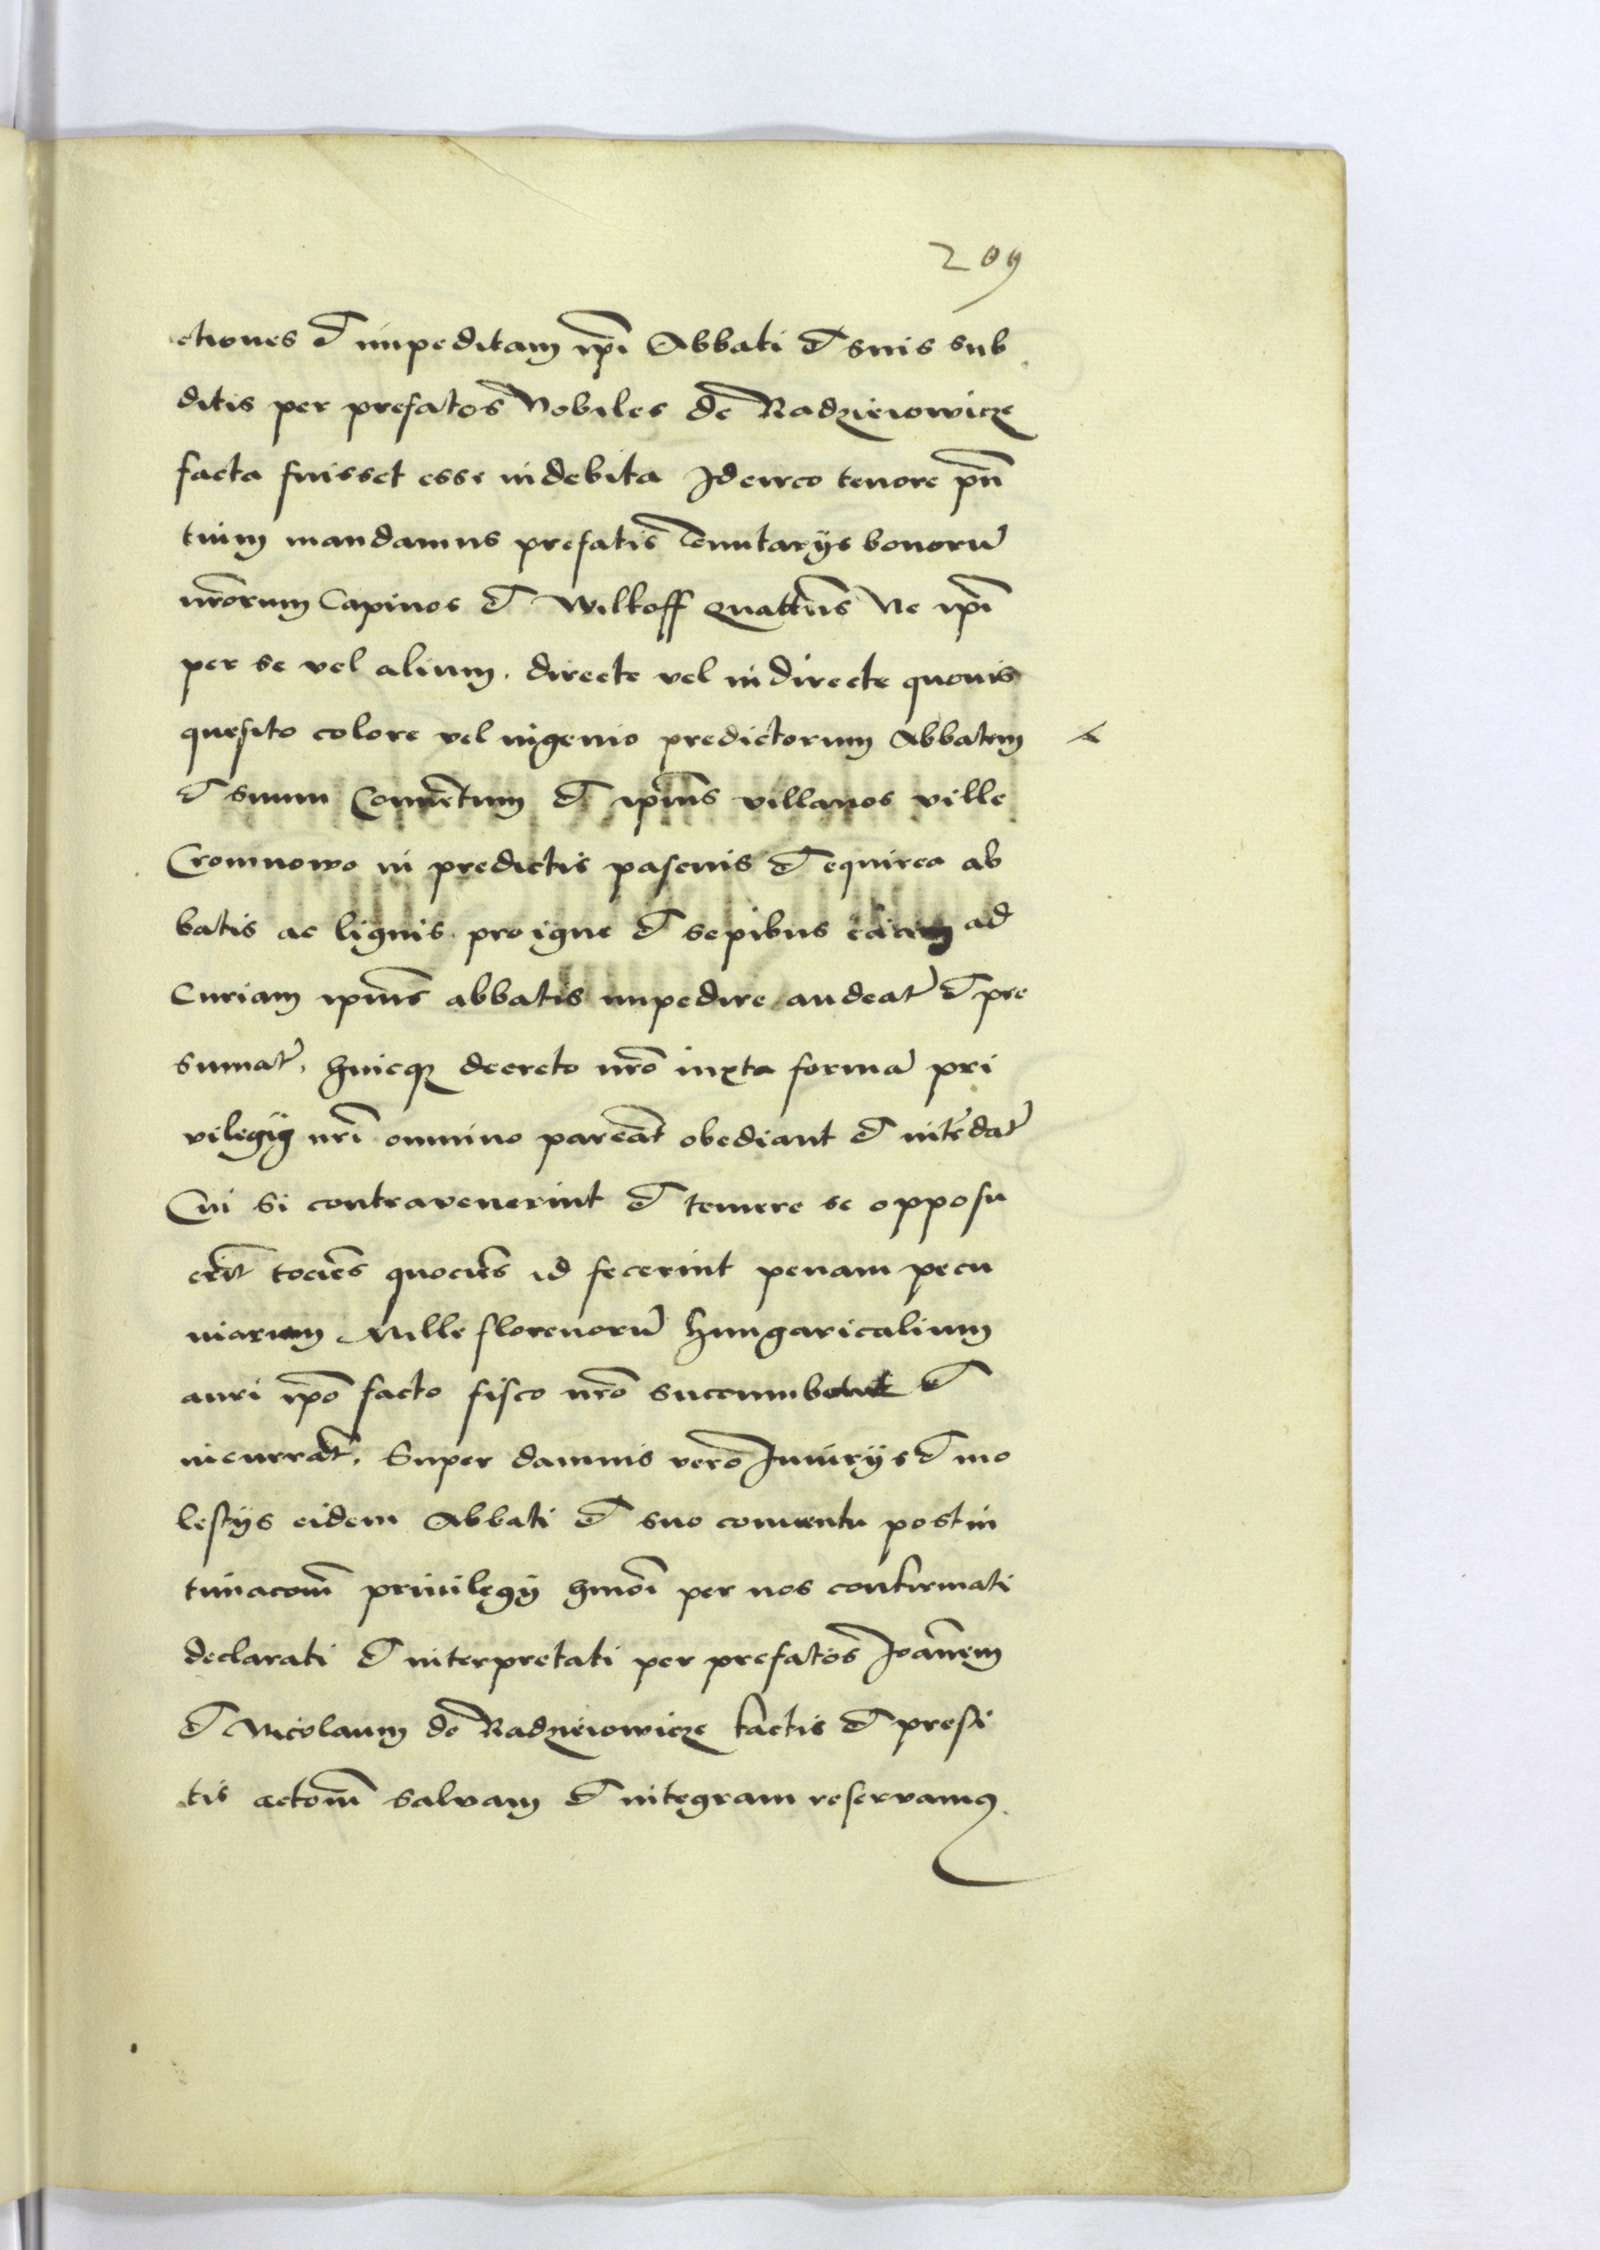 209
ctiones et impeditam ip̄i Abbati et suis sub
ditis per prefatos Nobiles de Radzieiowicze
facta fuisset esse indebita Idcirco tenore pn̄
tium mandamus prefatis Tenutarijs bonorū
nr̄orum Capinos et Wilkoff Quatten̄s Ne ip̄i
per se vel alium. directe vel indirecte quouis
quesito colore vel ingenio predictorum Abbatem
et suum Conuētum et ip̄ius villanos ville
Cromnowo in predictis pascuis et equirea ab
batis ac lignis pro igne et sepibus ad
Curiam ip̄ius abbatis impedire audeāt et pre
sumāt. huicq₃ decreto nr̄o iuxta formā pri
vilegij nr̄i omnino pareāt obediant et intēdāt
Cui si contravenerint et temere se opposu
erīt tociēs quociēs id fecerint penam pecu
niariam Mille florenorū hungaricalium
auri ip̄o facto fisco nr̄o succumbant et
incurrāt. Super damnis vero Iniurijs et mo
lestijs eidem Abbati et suo conuentu post in
timacōm̄ priuilegij hmōi per nos confirmati
declarati et interpretati per prefatos Ioān̄em
et Nicolaum de Radzieiowicze factis et presi
tis actōm̄ salvam et integram reservamꝰ.